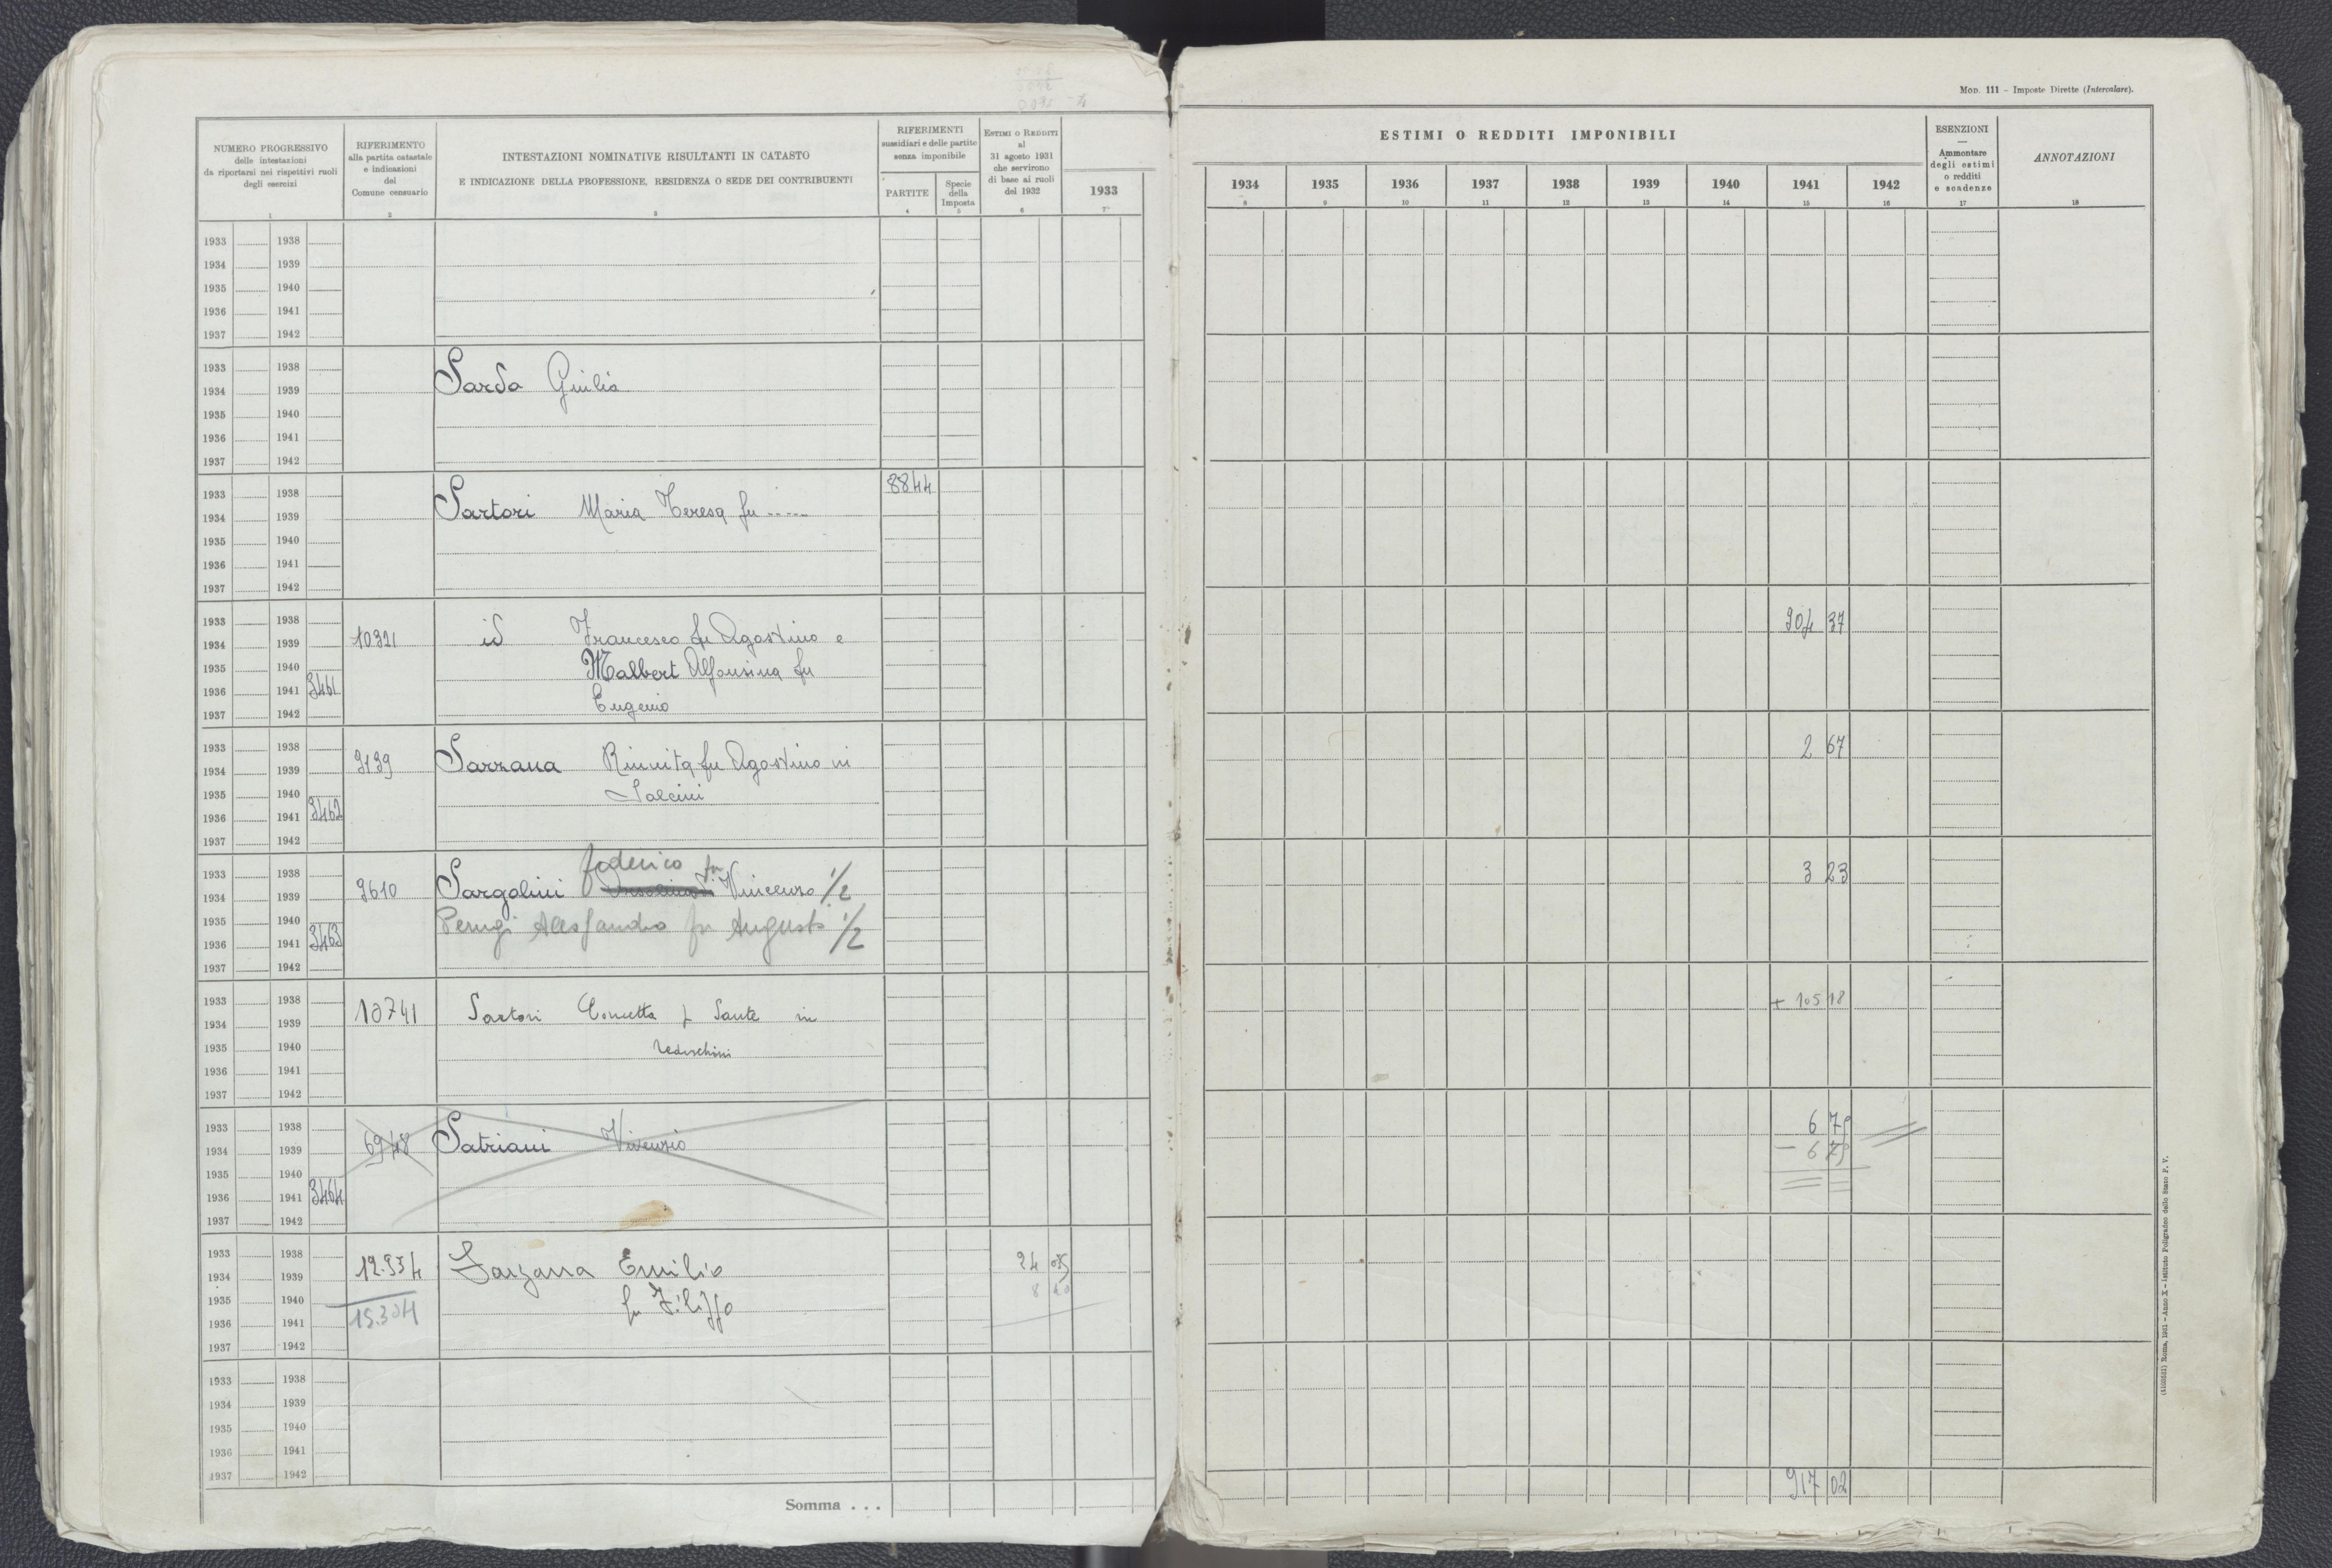 Mod. 111 - Imposte Dirette (Intercalare).
NUMERO PROGRESSIVO
delle intestazioni
da riportarsi nei rispettivi ruoli
degli esercizi
1
RIFERIMENTO
alla partita catastale
e indicazioni
del
Comune censuario
2
INTESTAZIONI NOMINATIVE RISULTANTI IN CATASTO
E INDICAZIONE DELLA PROFESSIONE, RESIDENZA O SEDE DEI CONTRIBUENTI
3
RIFERIMENTI
sussidiari e delle partite
senza imponibile
PARTITE
4
Specie
della
Imposta
5
ESTIMI O REDDITI
al
31 agosto 1931
che servirono
di base ai ruoli
del 1932
6
1933
7
ESTIMI O REDDITI IMPONIBILI
1934 1935 1936 1937 1938 1939 1940 1941 1942
8 9 10 11 12 13 14 15 16
ESENZIONI
—
Ammontare
degli estimi
o redditi
e scadenze
17
ANNOTAZIONI
18
1933 1938
1934 1939
1935 1940
1936 1941
1937 1942
1933 1938
1934 1939 Sarda Giulia
1935 1940
1936 1941
1937 1942
1933 1938 8844
1934 1939 Sartori Maria Teresa fu .....
1935 1940
1936 1941
1937 1942
1933 1938 904 37
1934 1939 10321 id Francesco fu Agostino e
1935 1940 Malbert Alfonsina fu
1936 1941 3461
1937 1942 Eugenio
1933 1938 2 67
1934 1939 9139 Sarzana Rinnita fu Agostino in
1935 1940 Salcini
1936 1941 3462
1937 1942
1933 1938 foderico fu 3 23
1934 1939 9610 Sargolini Vincenzo 1/2
1935 1940 Perugi Alessandro fu Augusto 1/2
1936 1941 3463
1937 1942
1933 1938 + 105 18
1934 1939 10741 Sartori Concetta f Sante in
1935 1940 Tedeschini
1936 1941
1937 1942
1933 1938 6 79
1934 1939 6948 Satriani Vivenzio - 6 79
1935 1940
1936 1941 3464
1937 1942
1933 1938 24 05
1934 1939 12.934 Sarzana Emilio
1935 1940 8 40
1936 1941 15.304 fu Filippo
1937 1942
1933 1938
1934 1939
1935 1940
1936 1941
1937 1942
Somma . . . 917 02
Roma, 1931 - Anno X - Istituto Poligrafico dello Stato P. V.